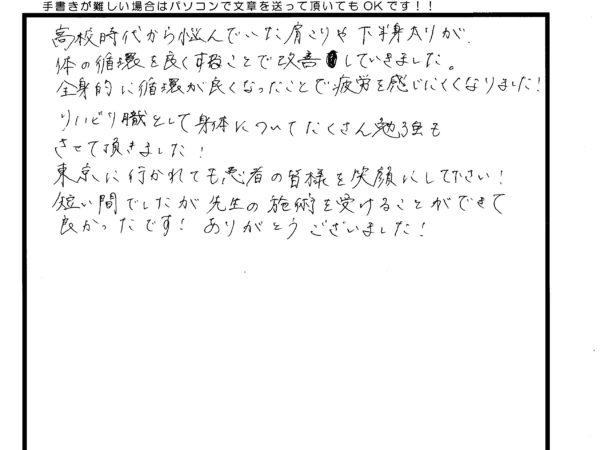 手書きが難しい場合はパソコンで文章を送って頂いてもOKです！！
高校時代から悩んでいた肩こりや下半身太りが、
体の循環を良くすることで改善していきました。
全身的に循環が良くなったことで疲労を感じにくくなりました！
リハビリ職として身体についてたくさん勉強も
させて頂きました！
東京に行かれても患者の皆様を笑顔にして下さい！
短い間でしたが先生の施術を受けることができて
良かったです！ ありがとうございました！